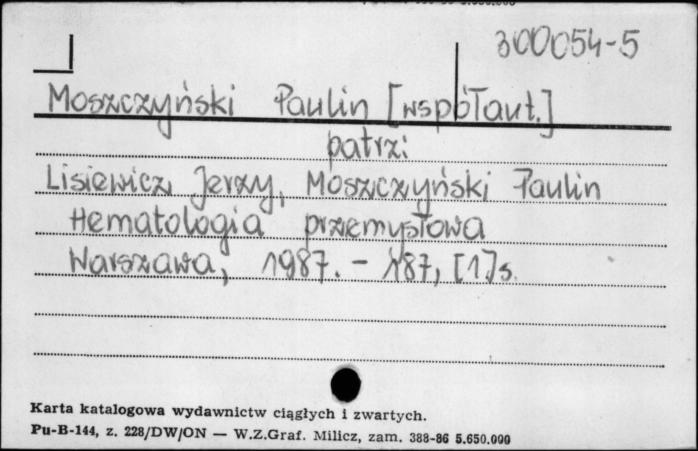 300054-5
Moszczyński Paulin [współaut.]
patrz:
Lisiewicz Jerzy, Moszczyński Paulin
Hematologia przemysłowa
Warszawa, 1987. - 187, [1]s.
Karta katalogowa wydawnictw ciągłych i zwartych.
Pu-B-144, z. 228/DW/ON — W.Z.Graf. Milicz, zam. 388-86 5.650.000